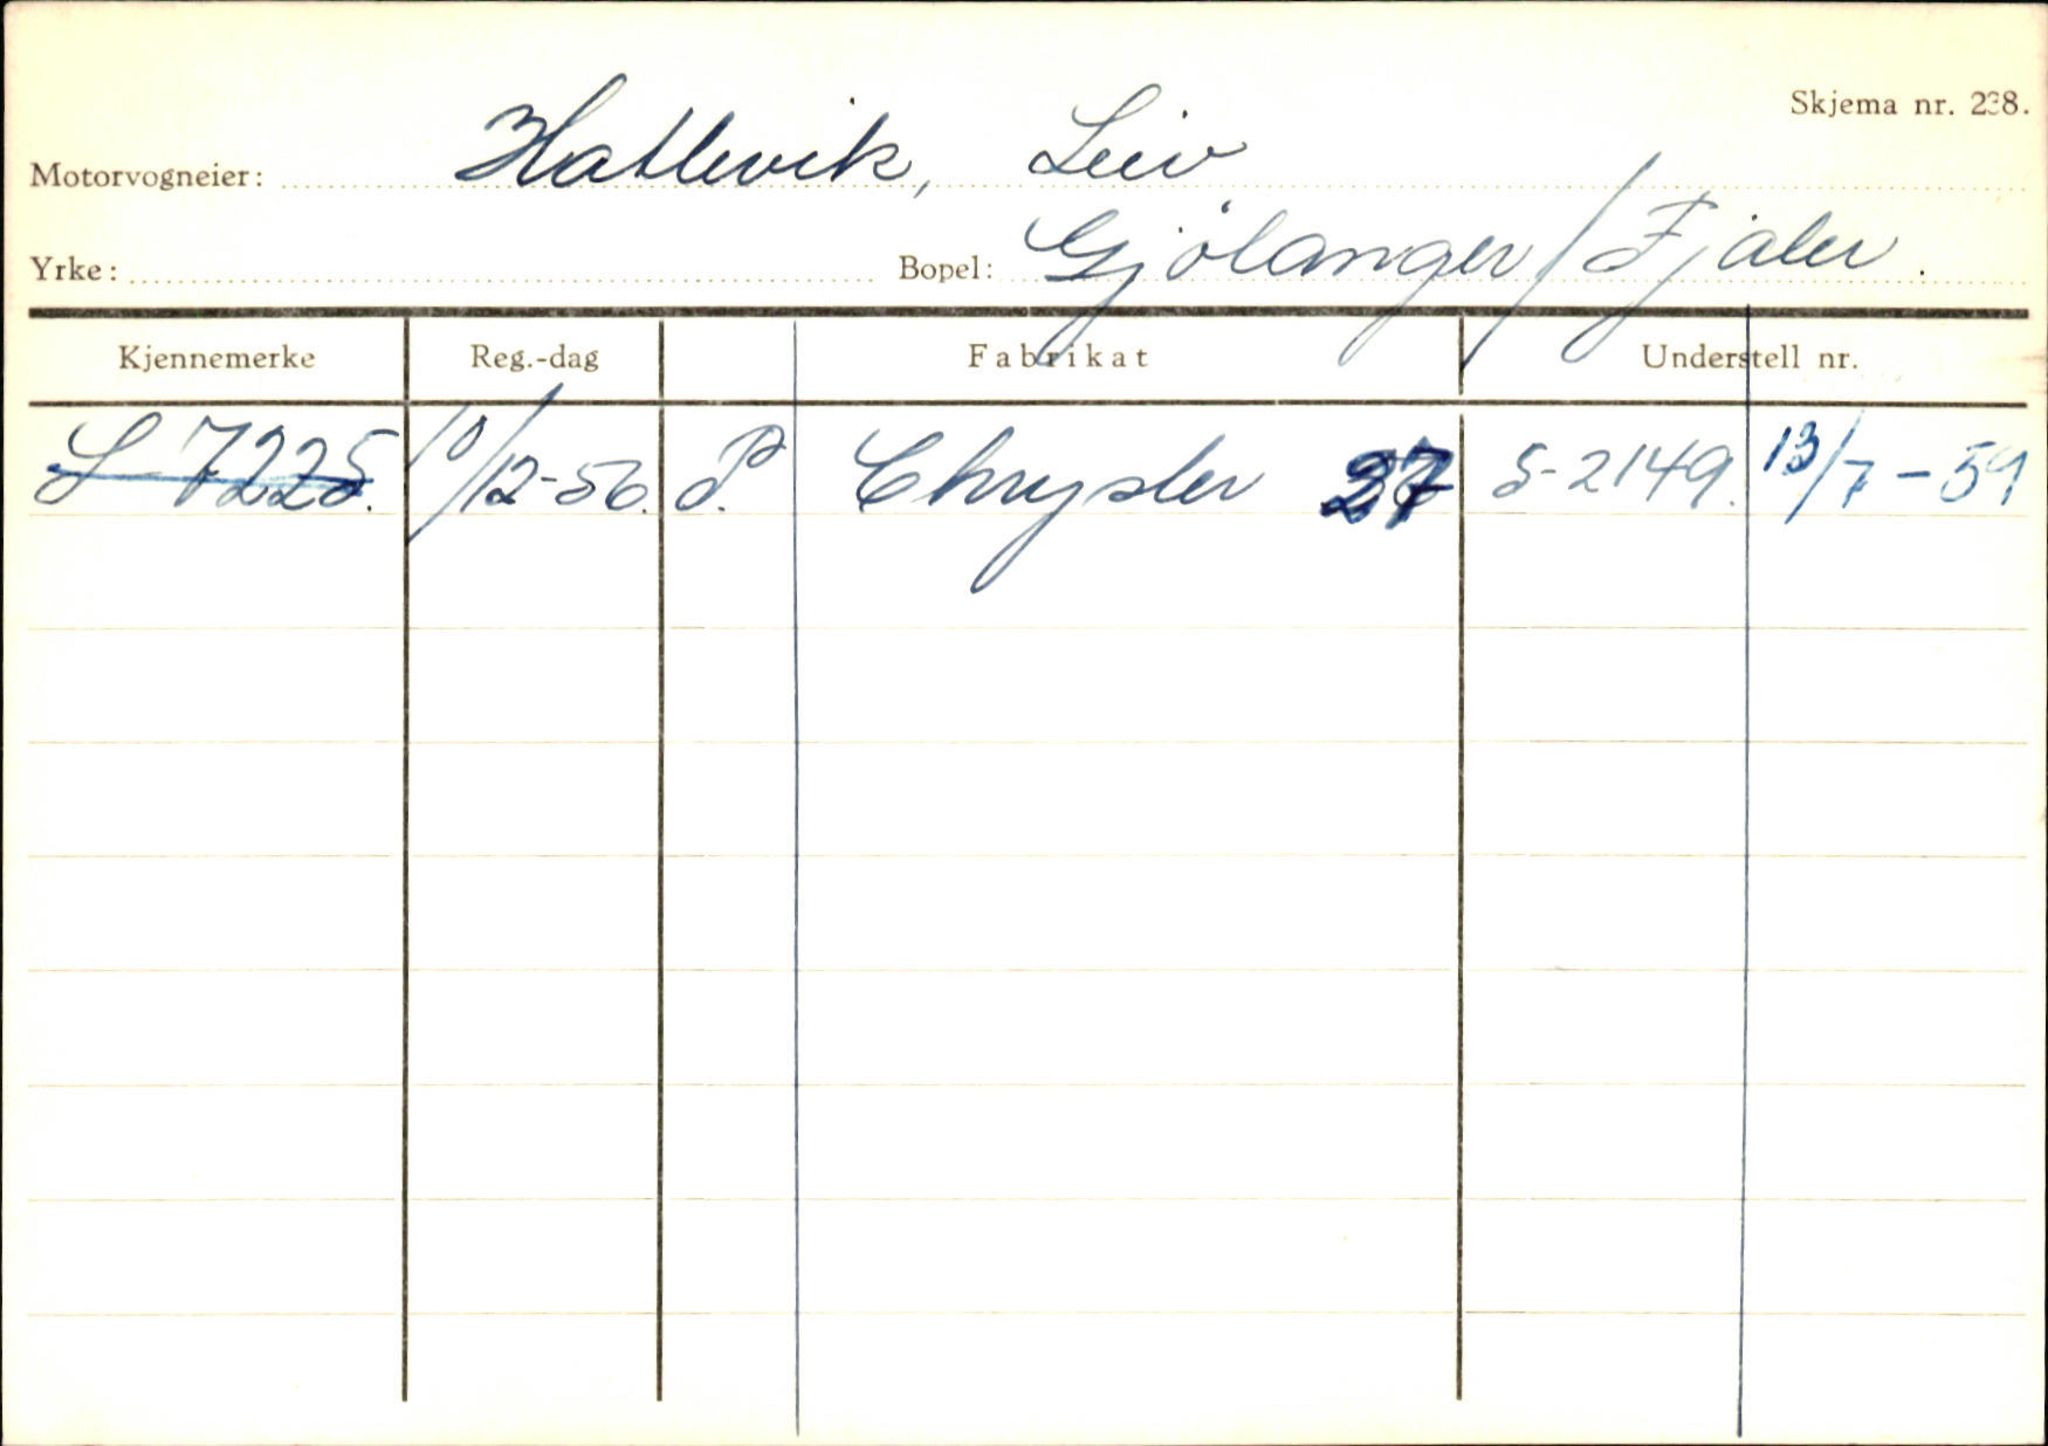 Skjema nr. 238.
Motorvogneier: Hatlevik, Leiv
Yrke: Bopel: Gjölanger/Fjaler.
Kjennemerke Reg.-dag Fabrikat Understell nr.
S 7225. 10/12-56. P. Chrysler 37 S-2149. 13/7-59